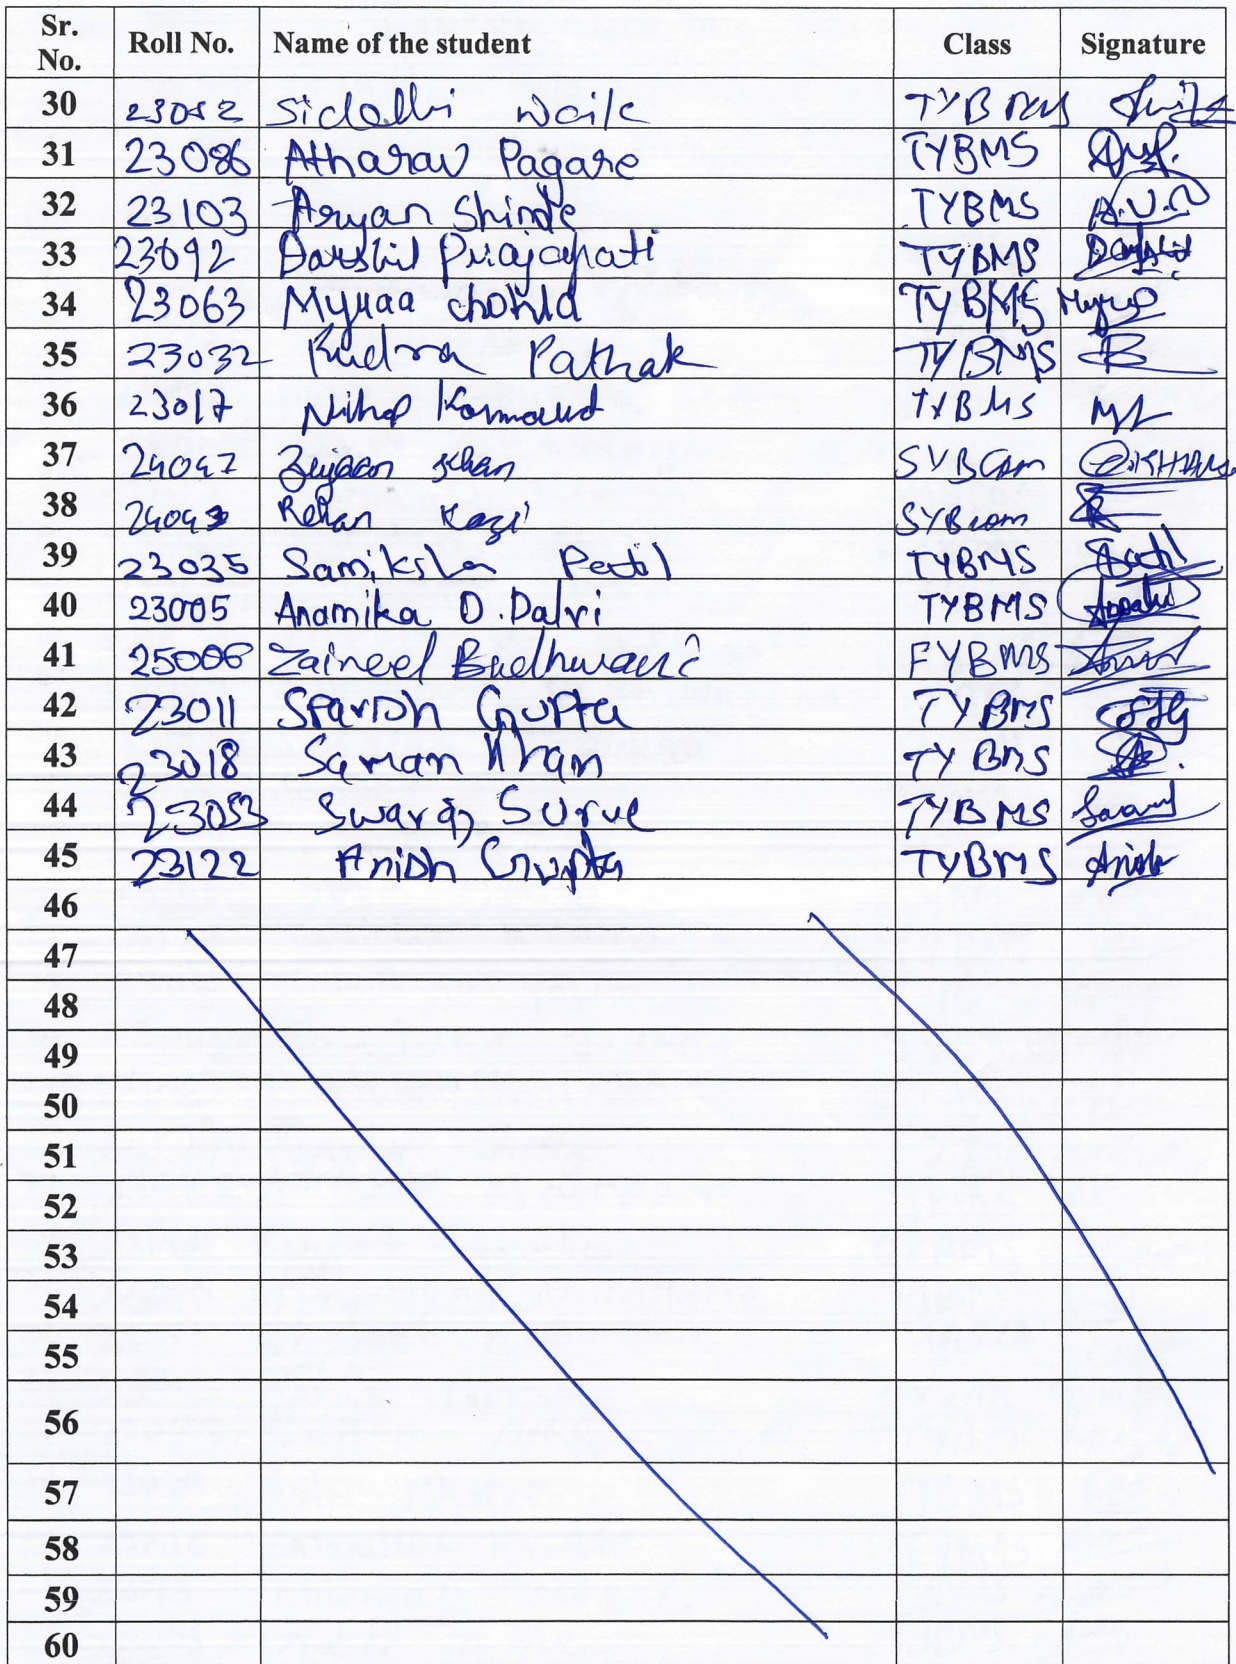 Sr. No. Roll No. Name of the student Class Signature
30 23052 Siddhi Waik TYBMS
31 23086 Atharav Pagare TYBMS
32 23103 Aryan Shinde TYBMS A.V.S
33 23092 Darshil Prajapati TYBMS Darshil
34 23063 Myraa Chohla TYBMS Myraa
35 23032 Rudra Pathak TYBMS
36 23017 Nihal Kamaud TYBMS
37 24047 Khan SYBCom KHAN
38 Rehan Kazi SYBcom
39 23035 Samiksha Patil TYBMS Patil
40 23005 Anamika D. Dalvi TYBMS
41 25006 Zaineel Budhwani FYBMS
42 23011 Sparsh Gupta TYBMS
43 23018 Saman Khan TYBMS
44 23053 Swaraj Surve TYBMS
45 23122 Anish Gupta TYBMS Anish
46
47
48
49
50
51
52
53
54
55
56
57
58
59
60